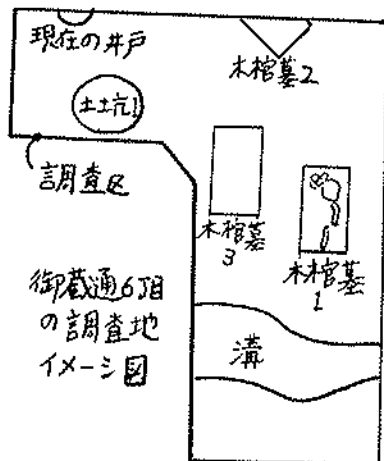 現在の井戸
木棺墓2
土坑1
調査区
木棺墓
3
木棺墓
1
御蔵通6丁目
の調査地
イメージ図
溝